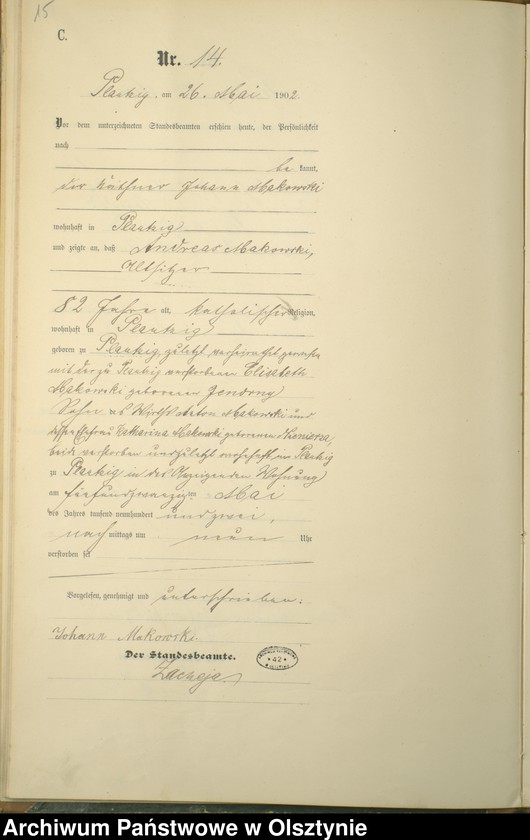 15
C.
Nr. 14.
Plautzig am 26. Mai 1902
Vor dem unterzeichneten Standesbeamten erschien heute, der Persönlichkeit
nach
be kannt,
der Käthner Johann Makowski
wohnhaft in Plautzig
und zeigte an, daß Andreas Makowski,
Altsitzer
82 Jahre alt, katholischer Religion,
wohnhaft in Plautzig
geboren zu Plautzig, zuletzt verheirathet gewesen
mit der zu Plautzig verstorbenen Elisabeth
Makowski geborenen Jendrny
Sohn des Wirths Anton Makowski und
dessen Ehefrau Katharina Makowski geborenen
beide verstorben und zuletzt wohnhaft in Plautzig
zu Plautzig in des Anzeigenden Wohnung
am fünfundzwanzigten Mai
des Jahres tausend neunhundert und zwei,
nach mittags um neun Uhr
verstorben sei
Vorgelesen, genehmigt und unterschrieben.
Johann Makowski
Der Standesbeamte.
Zacheja
42
Archiwum Państwowe w Olsztynie